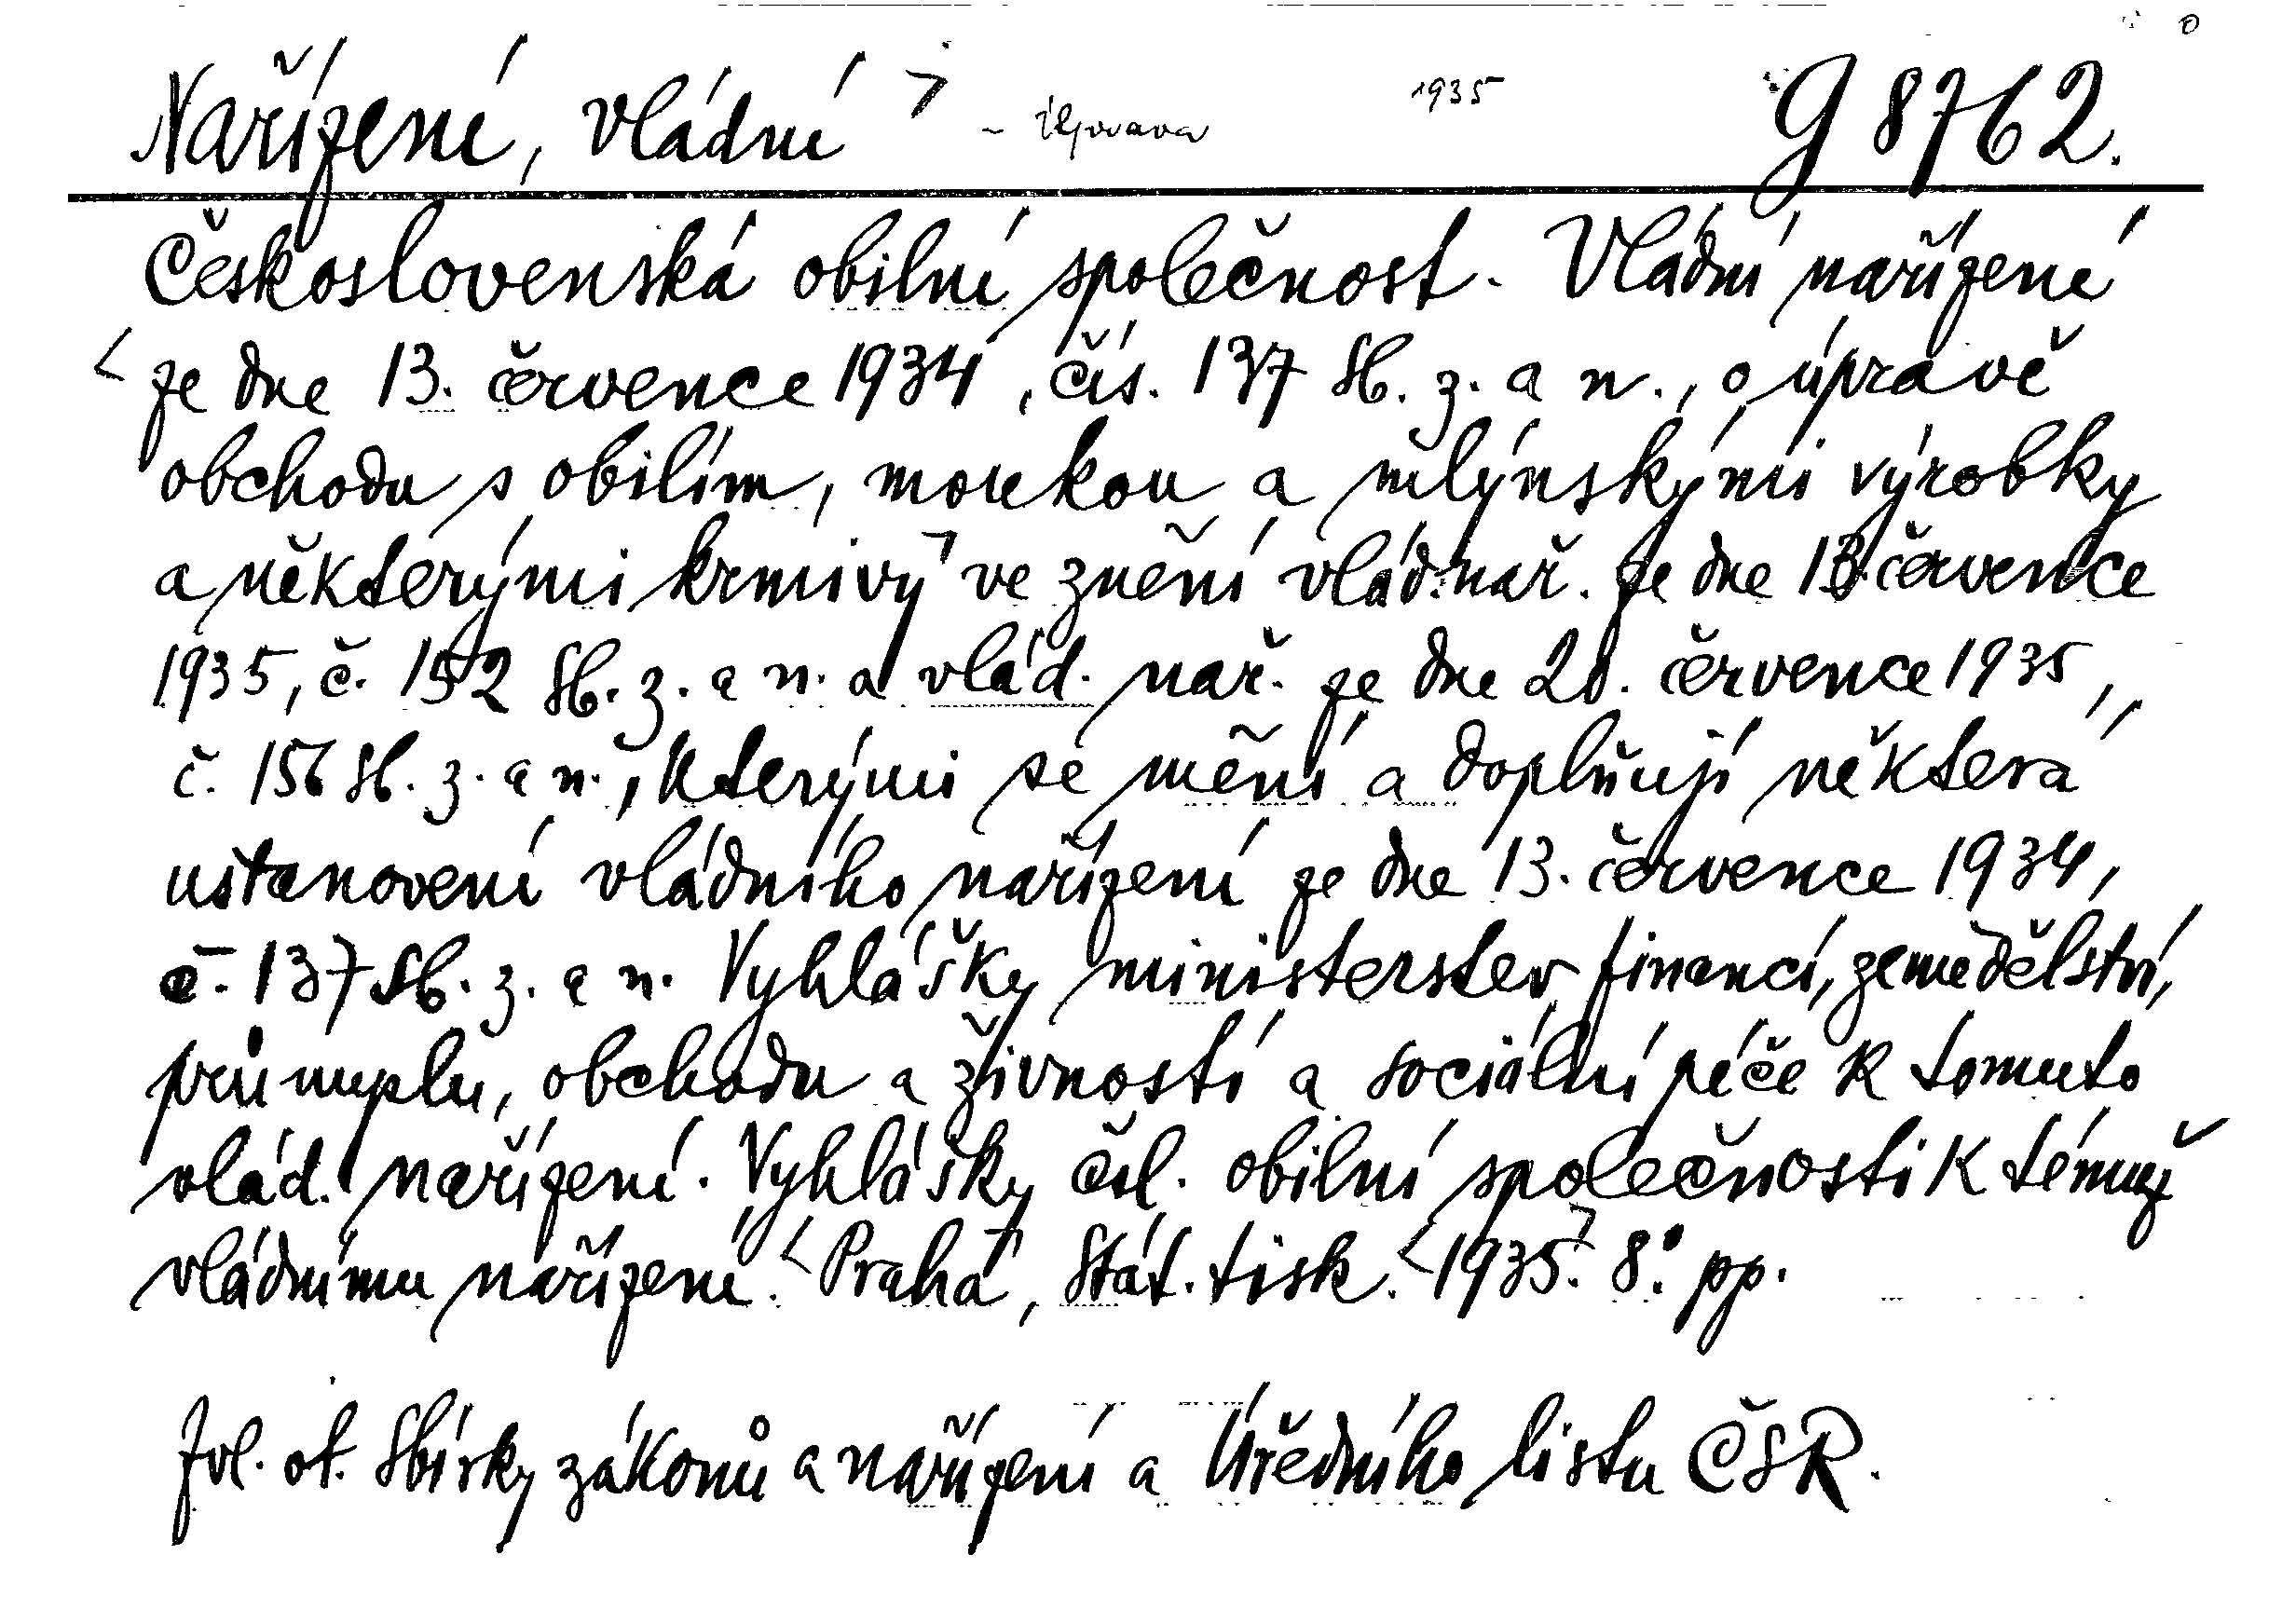 Nařízení, vládní - úprava 1935 G 8762.
Československá obilní společnost. Vládní nařízení
ze dne 13. července 1934, čís. 137 Sb. z. a n., o úpravě
obchodu s obilím, moukou a mlýnskými výrobky
a některými krmivy ve znění vlád. nař. ze dne 13. července
1935, č. 152 Sb. z. a n. a vlád. nař. ze dne 20. července 1935,
č. 156 Sb. z. a n., kterými se mění a doplňují některá
ustanovení vládního nařízení ze dne 13. července 1934,
č. 137 Sb. z. a n. Vyhlášky ministerstev financí, zemědělství,
průmyslu, obchodu a živností a sociální péče k tomuto
vlád. nařízení. Vyhlášky čsl. obilní společnosti k témuž
vládnímu nařízení. Praha, Stát. tisk. 1935. 8° pp.
Zvl. ot. Sbírky zákonů a nařízení a Úředního listu ČSR.